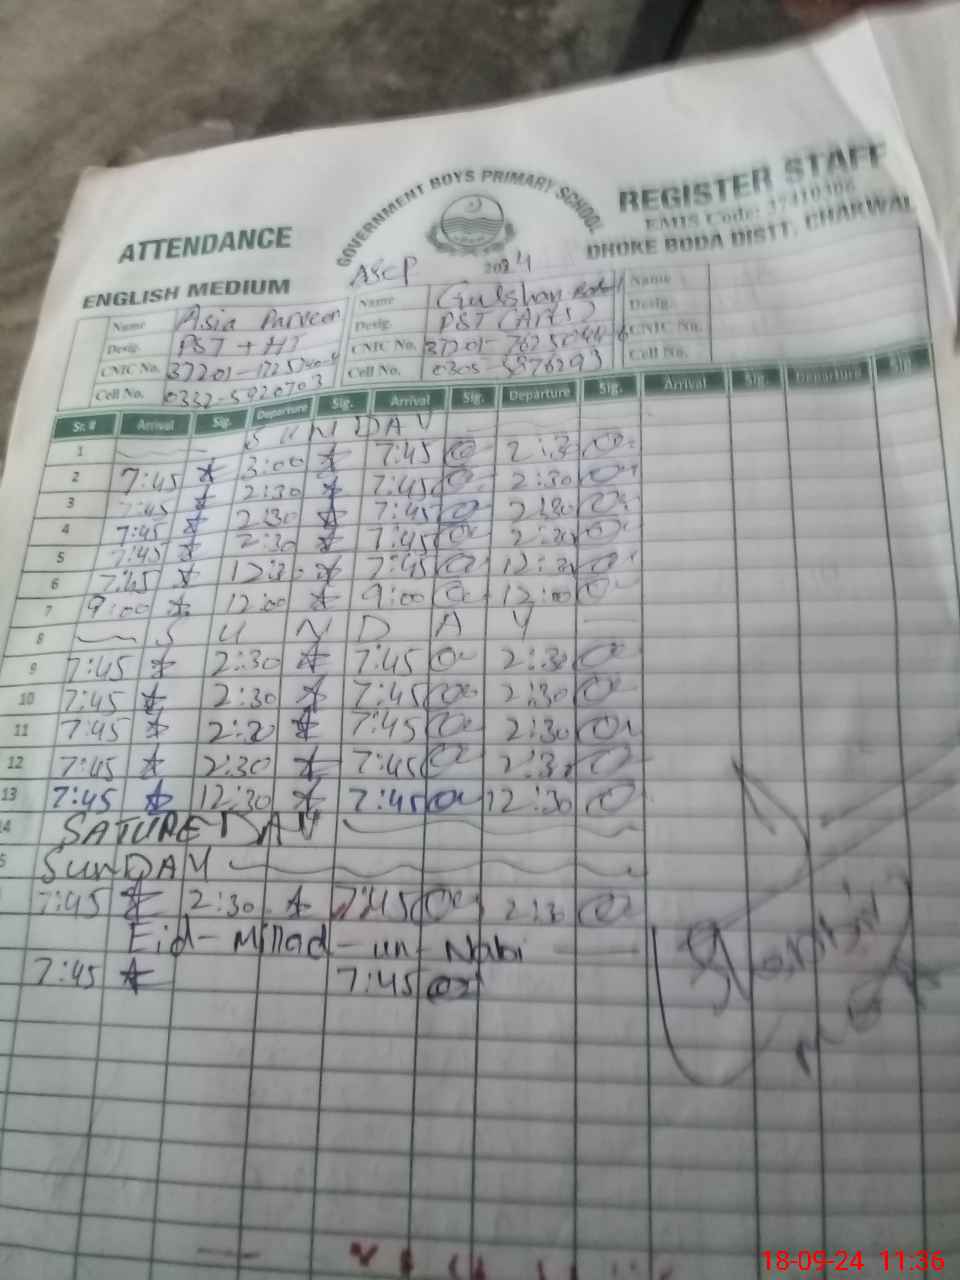 GOVERNMENT BOYS PRIMARY SCHOOL
REGISTER STAFF
EMIS Code: 37410306
DHOKE BODA DISTT. CHAKWAL
ATTENDANCE
ENGLISH MEDIUM
2024
Name Asia Parveen
Desig. PST + HT
CNIC No.
Cell No. 0332-5920703
Name Gulshan
Desig. PST (Arts)
CNIC No.
Cell No. 0305-5876293
Name
Desig.
CNIC No.
Cell No.
Sr. # Arrival Sig. Departure Sig. Arrival Sig. Departure Sig. Arrival Sig. Departure Sig.
1 SUNDAY
2 7:45 3:00 7:45 2:30
3 7:45 2:30 7:45 2:30
4 7:45 2:30 7:45 2:30
5 7:45 2:30 7:45 2:30
6 7:45 12:30 7:45 12:30
7 9:00 12:00 9:00 12:00
8 SUNDAY
9 7:45 2:30 7:45 2:30
10 7:45 2:30 7:45 2:30
11 7:45 2:30 7:45 2:30
12 7:45 2:30 7:45 2:30
13 7:45 12:30 7:45 12:30
14 SATUREDAY
SUNDAY
7:45 2:30 7:45 2:30
Eid-Millad-un-Nabi
7:45 7:45
18-09-24 11:36